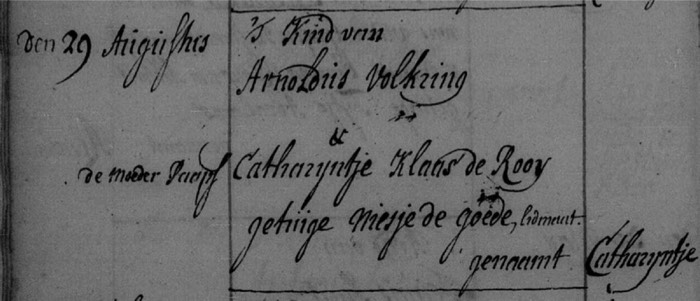 den 29 Augustus 't Kind van
Arnoldus Volkring
&
de moeder Paaps Catharyntje Klaas de Rooy
getuige Niesje de Goede, lidmaat.
genaamt Catharyntje